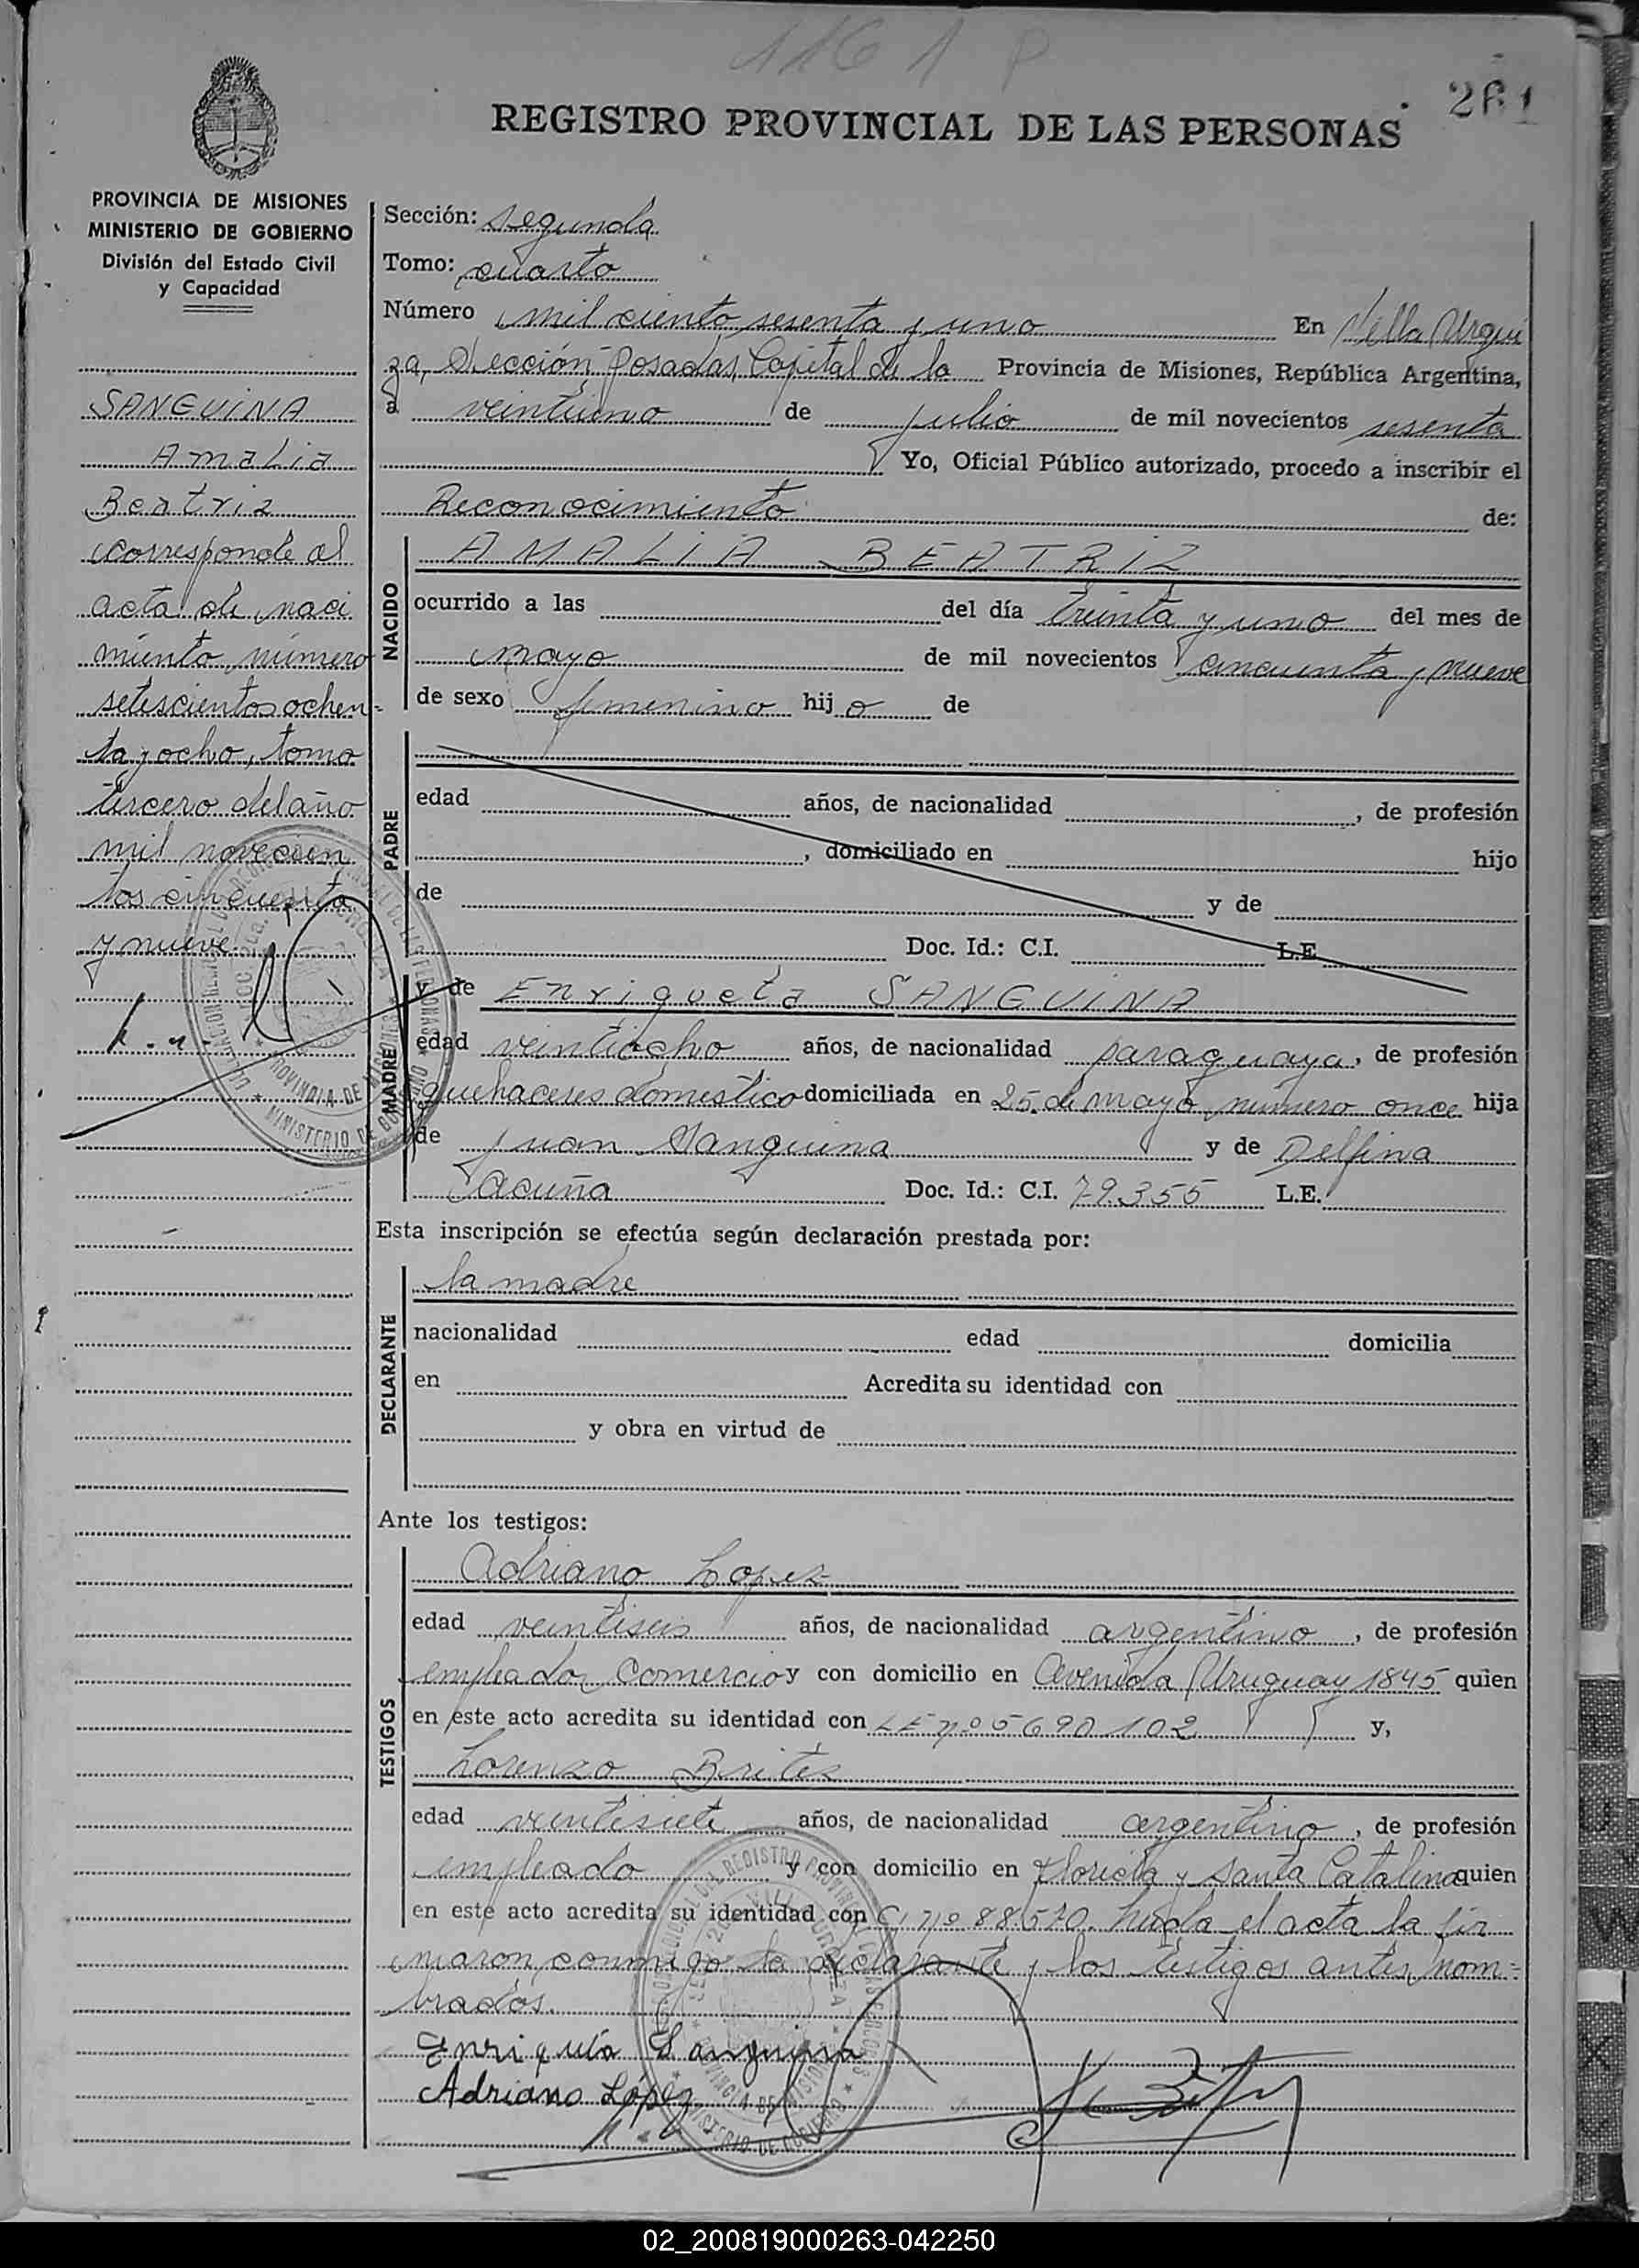 1161 P
261
REGISTRO PROVINCIAL DE LAS PERSONAS
PROVINCIA DE MISIONES
MINISTERIO DE GOBIERNO
División del Estado Civil
y Capacidad
SANGUINA
Amalia
Beatriz
corresponde al
acta de naci
miento número
setescientos ochen-
ta y ocho, tomo
tercero del año
mil novecien
tos cincuenta
y nueve.
Sección: segunda
Tomo: cuarto
Número mil ciento sesenta y uno En Villa Urqui
za, Sección Posadas, Capital de la Provincia de Misiones, República Argentina,
a veintiuno de julio de mil novecientos sesenta
Yo, Oficial Público autorizado, procedo a inscribir el
Reconocimiento de:
NACIDO
AMALIA BEATRIZ
ocurrido a las del día treinta y uno del mes de
mayo de mil novecientos cincuenta y nueve
de sexo femenino hijo de
PADRE
edad años, de nacionalidad , de profesión
, domiciliado en hijo
de y de
Doc. Id.: C.I. L.E.
MADRE
y de Enriqueta SANGUINA
edad veintiocho años, de nacionalidad paraguaya, de profesión
quehaceres domestico domiciliada en 25 de mayo número once hija
de Juan Sanguina y de Delfina
Acuña Doc. Id.: C.I. 79.355 L.E.
Esta inscripción se efectúa según declaración prestada por:
DECLARANTE
la madre
nacionalidad edad domicilia
en Acredita su identidad con
y obra en virtud de
Ante los testigos:
TESTIGOS
Adriano Lopez
edad veintiseis años, de nacionalidad argentino, de profesión
empleado comercio y con domicilio en Avenida Uruguay 1845 quien
en este acto acredita su identidad con LE nº 5690102 y,
Lorenzo Britez
edad veintisiete años, de nacionalidad argentino, de profesión
empleado y con domicilio en Floricla y Santa Catalina quien
en este acto acredita su identidad con CI nº 88.520. leida el acta la fir
maron conmigo la declarante y los testigos antes nom-
brados.
Enriqueta Sanguina
Adriano López
02_200819000263-042250